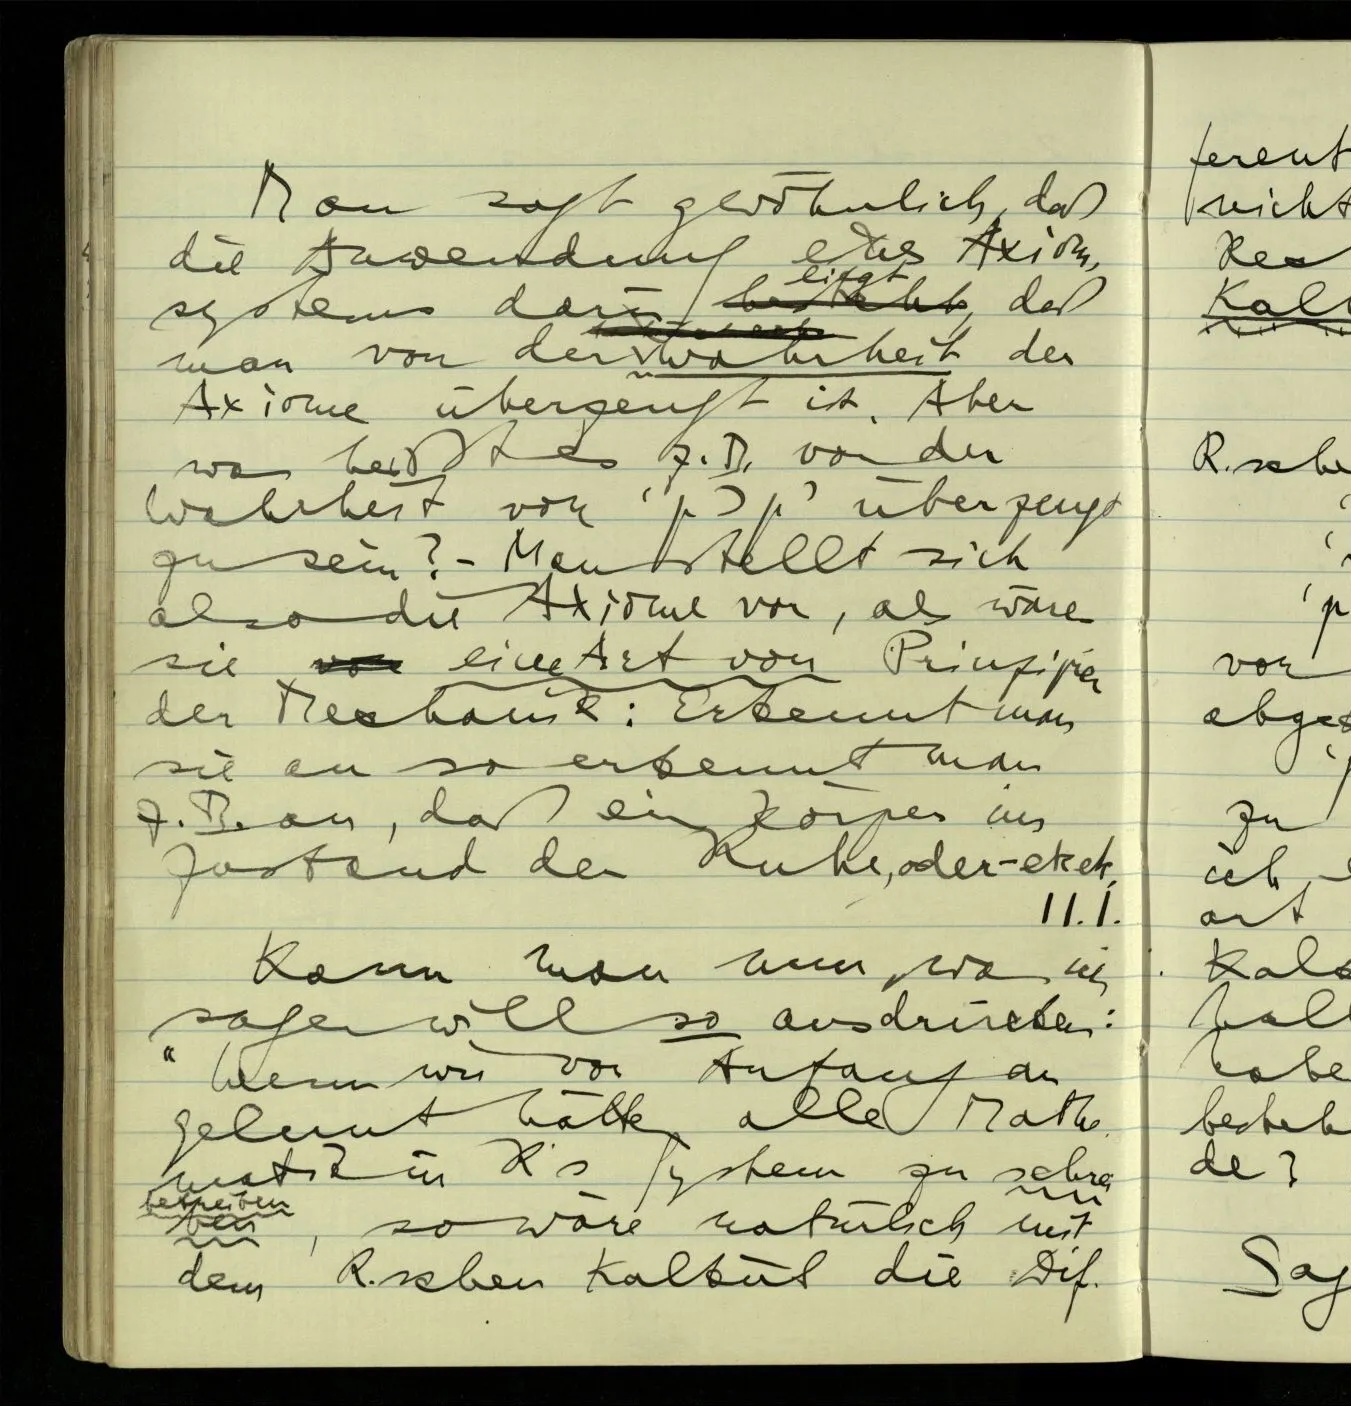 Man sagt gewöhnlich, daß
die Anwendung eines Axiom,
liegt
systems darin besteht, daß
man von der Wahrheit der
Axiome überzeugt ist. Aber
was heißt es z.B. von der
Wahrheit von 'p⊃p' überzeugt
zu sein? – Man stellt sich
also die Axiome vor, als wären
sie von eine Art von Prinzipien
der Mechanik: Erkennt man
sie an so erkennt man
z.B. an, daß ein Körper im
Zustand der Ruhe, oder – etc etc.
11.1.
Kann man nun, was ich
sagen will so ausdrücken:
"Wenn wir von Anfang an
gelernt hätten alle Mathe
matik in R's System zu schrei
betreiben
ben, so wäre natürlich mit
dem R.schen Kalkül die Dif.
ferent
nicht
R.sche
'p
von
zu
ich
art
habe
de?
Sag